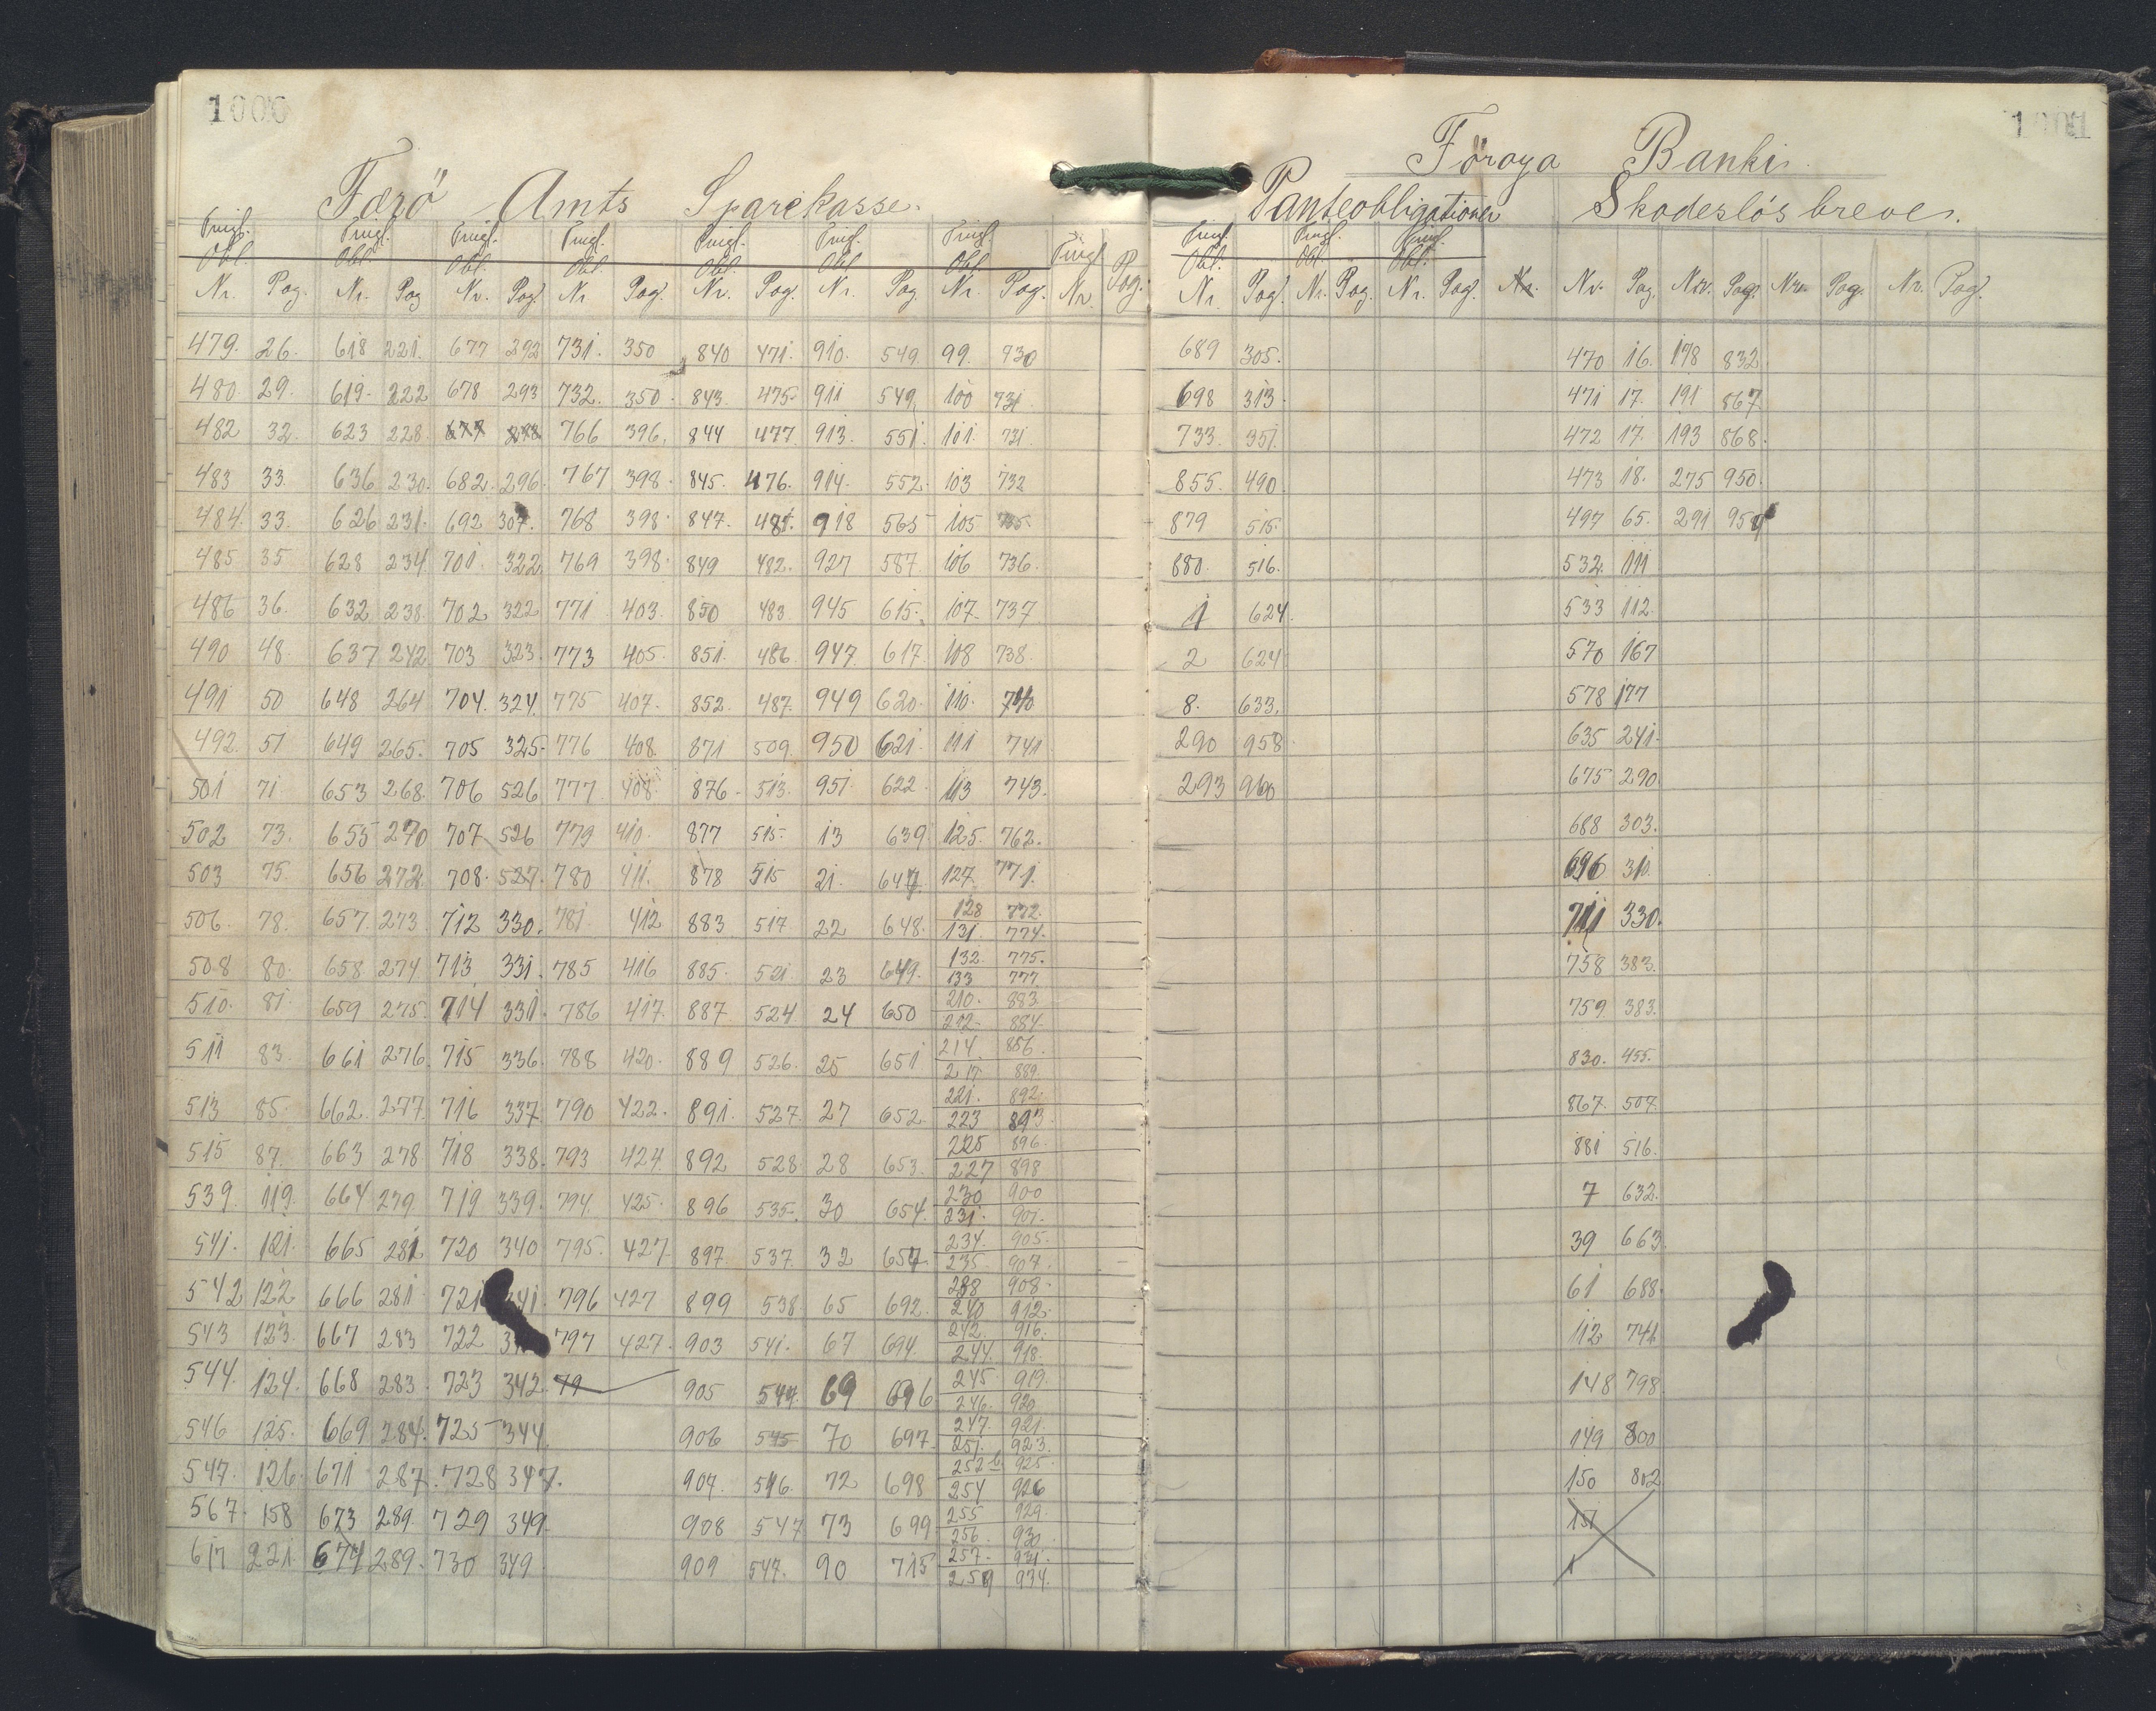 1000
Færö Amts Sparekasse.
Tingl. Tingl. Tingl. Tingl. Tingl. Tingl. Tingl. Tingl
Obl. Obl. Obl. Obl. Obl. Obl. Obl.
Nr. Pag. Nr. Pag Nr. Pag. Nr Pag. Nr. Pag. Nr. Pag. Nr. Pag. Nr. Pag.
479. 26. 618 221. 677 292 731. 350 840 471. 910. 549. 99. 730
480. 29. 619. 222 678 293 732. 350. 843. 475. 911 549. 100 731
482 32. 623 228. 677 766 396. 844 477 913. 551. 101. 731.
483 33. 636 230. 682. 296. 767 398. 845. 476. 914. 552. 103 732
484. 33. 626 231. 692 307. 768 398. 847. 481. 918 565 105
485 35 628 234 701. 322 769 398. 849 482. 927 587 106 736.
486 36. 632 238. 702 322 771 403. 850 483 945 615. 107. 737
490 48. 637 242 703 323. 773 405. 851. 486. 947. 617. 108 738.
491 50 648 264 704. 324. 775 407. 852. 487. 949 620. 110. 740
492. 51 649 265. 705 325. 776 408. 871 509. 950 621. 111 741
501 71 653 268. 706 526 777 408. 876. 513. 951. 622. 113 743.
502 73. 655 270 707 526 779 410. 877 515. 13 639. 125. 762.
503 75. 656 272 708. 527. 780 411. 878 515 21. 647. 127. 771.
506. 78. 657. 273. 712 330. 781. 412 883 517 22 648. 128 772.
131. 774.
508 80. 658. 274 713 331. 785 416 885. 521. 23 649. 132. 775.
133 777
510. 81. 659 275. 714 331. 786 417. 887. 524 24 650 210. 883
212. 884.
511 83. 661 276. 715 336. 788 420. 889 526. 25 651 214. 886.
217. 889.
513 85. 662. 277. 716 337. 790 422. 891. 527. 27 652. 221. 892.
223 893.
515 87. 663 278 718 338. 793 424. 892 528 28 653. 225 896.
227 898
539. 119. 664 279. 719 339. 794. 425. 896 535. 30 654. 230 900
231. 901.
541. 121. 665 281 720 340 795. 427. 897. 537. 32 657 234. 905.
235. 907.
542 122 666 281. 721 341. 796 427 899 538. 65 692. 238 908.
240 912.
543 123. 667 283 722 797 427. 903 541. 67 694. 242. 916.
244. 918.
544. 124. 668 283. 723 342. 79 905 544. 69 696 245 919.
246. 920
546 125. 669 284. 725 344. 906 545 70 697. 247. 921.
251. 923.
547. 126. 671 287. 728 347. 907. 546. 72 698 252 b 925.
254 926
567. 158 673 289. 729 349. 908 547 73 699 255 929.
256. 930.
617 221. 674 289. 730 349 909 547. 90 715 257. 931.
259 934.
1001
Föroya Banki.
Panteobligationer Skadeslösbreve.
Tingl. Tingl. Tingl.
Obl. Obl. Obl.
Nr. Pag. Nr. Pag. Nr. Pag. Nr. Nr. Pag. Nr. Pag. Nr. Pag. Nr. Pag.
689 305. 470 16. 178 832.
698 313. 471 17. 191 867
733. 351. 472 17. 193 868.
855. 490. 473 18. 275 950.
879 515. 497 65. 291 959
880. 516. 532. 111
1 624. 533 112.
2 624 570 167
8. 633. 578 177
290 958. 635 241.
293 960 675 290.
688 303.
696 310.
711 330.
758 383.
759 383.
830. 455.
867. 507.
881 516.
7 632.
39 663
61 688.
112 741
148 798.
149 800
150 802
151